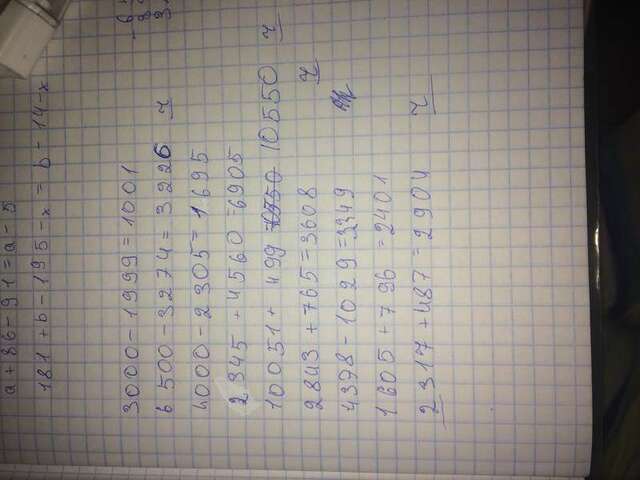 a + 86 - 91 = a - 5
181 + b - 195 - x = b - 14 - x
3000 - 1999 = 1001
6500 - 3274 = 3226 ч
4000 - 2305 = 1695
2345 + 4560 = 6905
10051 + 499 10550 ч
2843 + 765 = 3608 ч
4378 - 1029 = 3349
1605 + 796 = 2401
2317 + 487 = 2904 ч